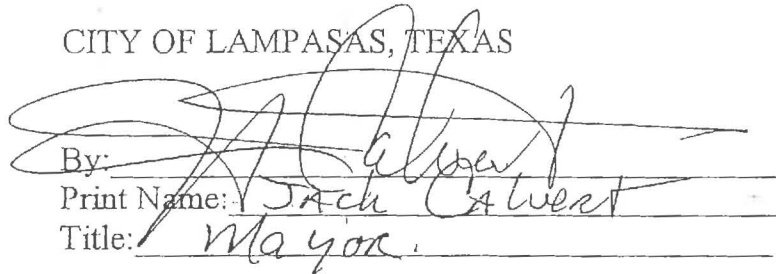 CITY OF LAMPASAS, TEXAS
By: Calvert
Print Name: Jack Calvert
Title: Mayor.